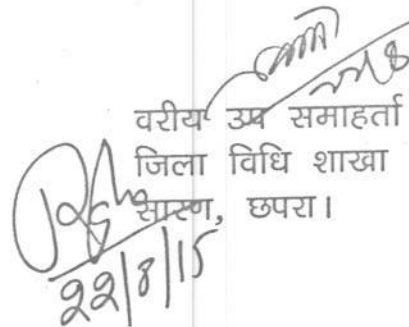 वरीय उप समाहर्ता
जिला विधि शाखा
सारण, छपरा।
22/8/15